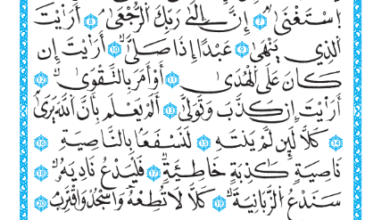 اسْتَغْنَىٰ ۝٧ إِنَّ إِلَىٰ رَبِّكَ الرُّجْعَىٰ ۝٨ أَرَأَيْتَ
الَّذِي يَنْهَىٰ ۝٩ عَبْدًا إِذَا صَلَّىٰ ۝١٠ أَرَأَيْتَ إِن
كَانَ عَلَى الْهُدَىٰ ۝١١ أَوْ أَمَرَ بِالتَّقْوَىٰ ۝١٢
أَرَأَيْتَ إِن كَذَّبَ وَتَوَلَّىٰ ۝١٣ أَلَمْ يَعْلَم بِأَنَّ اللَّهَ يَرَىٰ
۝١٤ كَلَّا لَئِن لَّمْ يَنتَهِ ۝١٥ لَنَسْفَعًا بِالنَّاصِيَةِ ۝١٦
نَاصِيَةٍ كَاذِبَةٍ خَاطِئَةٍ ۝١٧ فَلْيَدْعُ نَادِيَهُ ۝١٨
سَنَدْعُ الزَّبَانِيَةَ ۝١٩ كَلَّا لَا تُطِعْهُ وَاسْجُدْ وَاقْتَرِب ۝٢٠